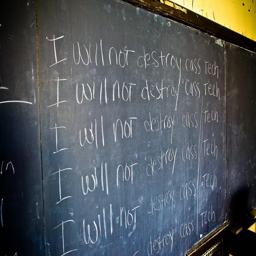 I will not destroy cass Tech
I will not destroy cass Tech
I will not destroy cass Tech
I will not destroy cass Tech
I will not destroy cass Tech
destroy cass Tech